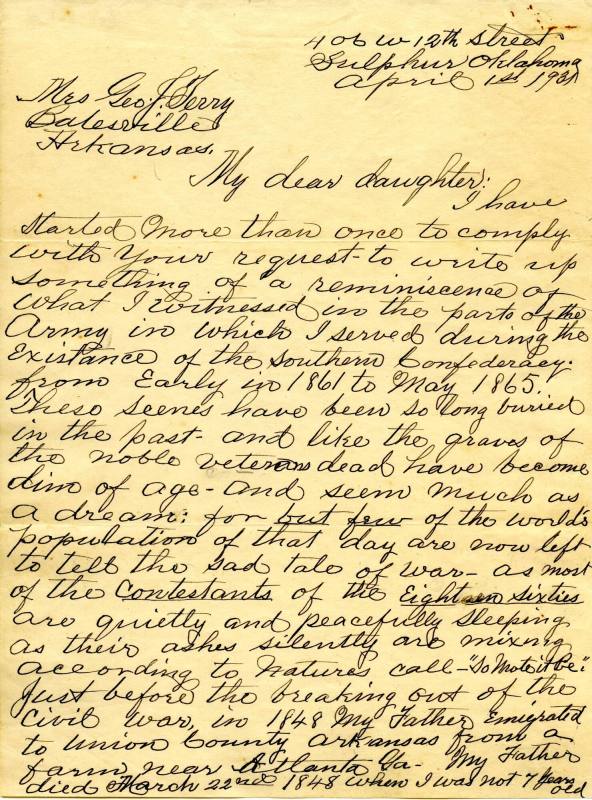 406 W 12th Street
Sulphur Oklahoma
April 1st 1931
Mrs Geo. J. Terry
Batesville
Arkansas.
My dear daughter:
I have
started more than once to comply
with your request- to write up
something of a reminiscence of
what I witnessed in the parts of the
Army in which I served during the
Existance of the Southern Confederacy.
from Early in 1861 to May 1865.
These scenes have been so long buried
in the past- and like the graves of
the noble veterans dead have become
dim of age- and seem much as
a dream: for but few of the world's
population of that day are now left
to tell the sad tale of war- as most
of the Contestants of the Eighteen sixties
are quietly and peacefully sleeping
as their ashes silently are mixing
according to natures call- "So Mote it be":
Just before the breaking out of the
Civil war, in 1848 My Father Emigrated
to Union County, Arkansas from a
farm near Atlanta Ga- My Father
died March 22nd 1848 when I was not 7 years
old